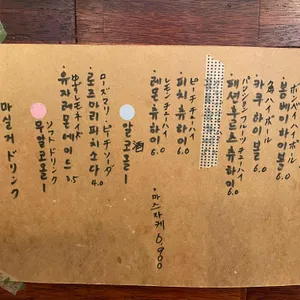 ボンベイハイボール
봄베이하이볼 6.0
角ハイボール
카쿠하이볼 6.0
パッションフルーツチューハイ
패션후르츠츄하이 6.0
ピーチチューハイ
피치츄하이 6.0
レモンチューハイ
레몬츄하이 6.0
알코올ー
酒
ローズマリーピーチソーダ
로즈마리피치소다 4.0
ゆずレモネイド
유자레몬네이드 3.5
ソフトドリンク
무알코올ー
마실거 ドリンク
・마스자케 6,900